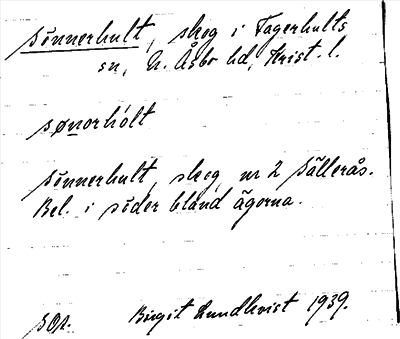 Sönnerhult, skog i Fagerhults
sn, N. Åsbo hd, Krist. l.
sønorhòlt
Sönnerhult, skog, nr 2 Sällerås.
Bel. i söder bland ägorna.
sor. Birgit Lundkvist 1939.